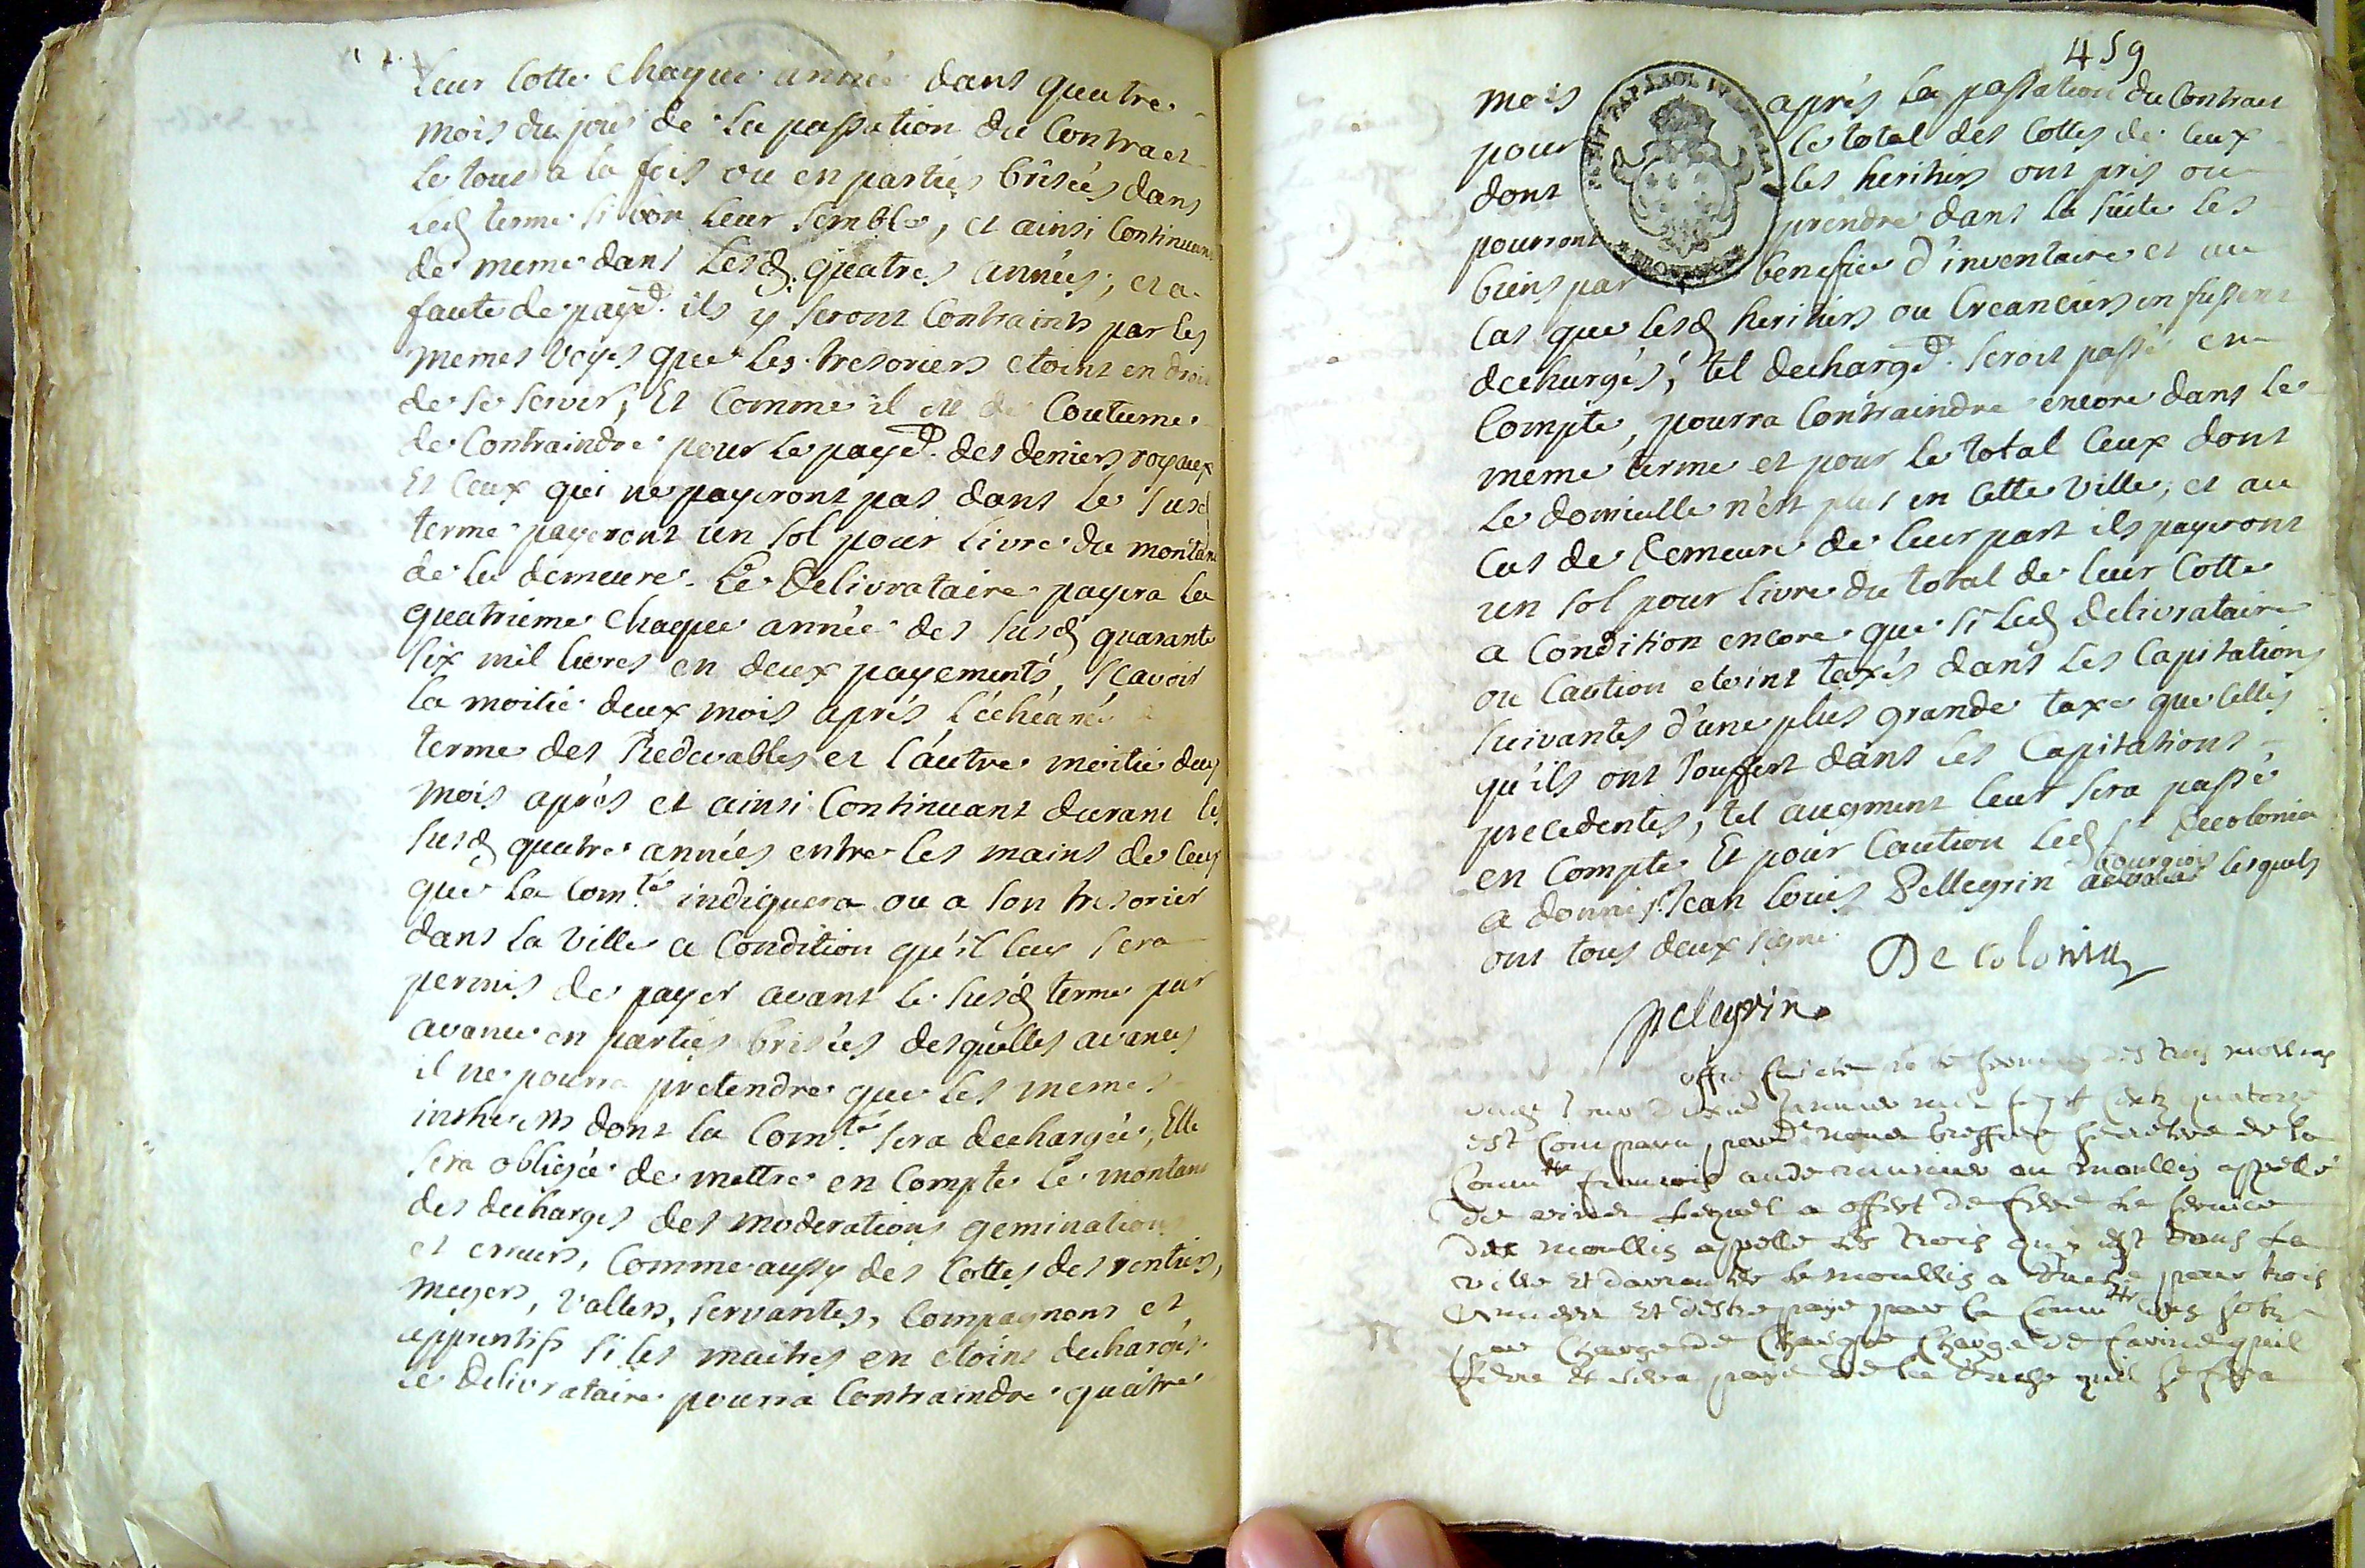 Leur Cotte chaque année dans quatre
mois du jour de la passation du Contract
le tout a la fois ou en parties brisées dans
led terme si bon leur semble, et ainsi Continuant
de meme dans lesd. quatres années, et a
faute de payem.t ils y seront Contraints par les
memes voyes que les tresoriers etoint en droit
de se servir, Et Comme il est de Coutume
de Contraindre pour le payem.t des deniers royaux
Et Ceux qui ne payeront pas dans le susd
terme payeront un sol pour livre du montant
de la demeure. Le Delivrataire payera la
quatrieme chaque année des susd quarante
six mil livres en deux payements, scavoir
la moitié deux mois aprés l'échéance
terme des Redevables et l'autre moitié deux
mois aprés et ainsi Continuant durant les
susd quatre années entre les mains de Ceux
que la Com.té indiquera ou a son tresorier
dans la ville a Condition qu'il leur sera
permis de payer avant le susd terme par
avance en parties brisées desquelles avances
il ne pourra pretendre que les memes
intherets dont la Com.té sera dechargée, Elle
sera obligée de mettre en Compte le montant
des decharges des moderations geminations
et erreurs, Comme aussy des Cottes des rentiers,
megers, vallets, servantes, Compagnons et
apprentifs si les maitres en etoint dechargés.
le Delivrataire pourra Contraindre quatre
459
mois aprés la passation du Contract
pour le total des Cottes de Ceux
dont les heritiers ont pris ou
pourront prendre dans la suite les
biens par benefice d'inventaire et au
Cas que lesd heritiers ou Creanciers en fussent
dechargés, tel decharg.t seroit passé en
Compte, pourra Contraindre encore dans le
meme terme et pour le total Ceux dont
le domicille n'est plus en Cette ville, et au
Cas de demeure de leur part ils payeront
un sol pour livre du total de leur Cotte
a Condition encore que si led delivrataire
ou Caution etoint taxés dans les Capitations
suivantes d'une plus grande taxe que Celles
qu'ils ont souffert dans les Capitations
precedentes, tel augment leur sera passé
en Compte Et pour Caution led S.r Decolonia
a donné s.r Jean louis Pellegrin bourgeois lesquels
ont tous deux signé.
De colonia
pellegrin
offre du service des trois moullins
janvier mil sept cents quatorze
est Comparu pard.t nous Greffier secretere de la
Comm.té francois aude munier au moullin appellé
lequel a offert de fere le service
des moullin appellé les trois qui est dans la
ville Et le moullin a pour trois
années Et destre payé par la Comm.té
par charge de chaque charge de farine quil
fera Et sera payé de la quil se fera